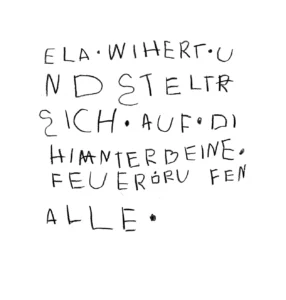 ELA·WIHERT·U
ND STELTR
SICH·AUF·DI
HIANTERBEINE.
FEUERÖRU FEN
ALLE.